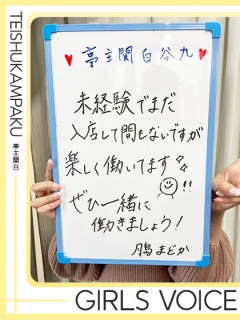 TEISHUKAMPAKU 亭主関白
♥亭主関白谷九♥
未経験でまだ
入店して間もないですが
楽しく働いてます
!!
ぜひ一緒に
働きましょう!
月島まどか
GIRLS VOICE